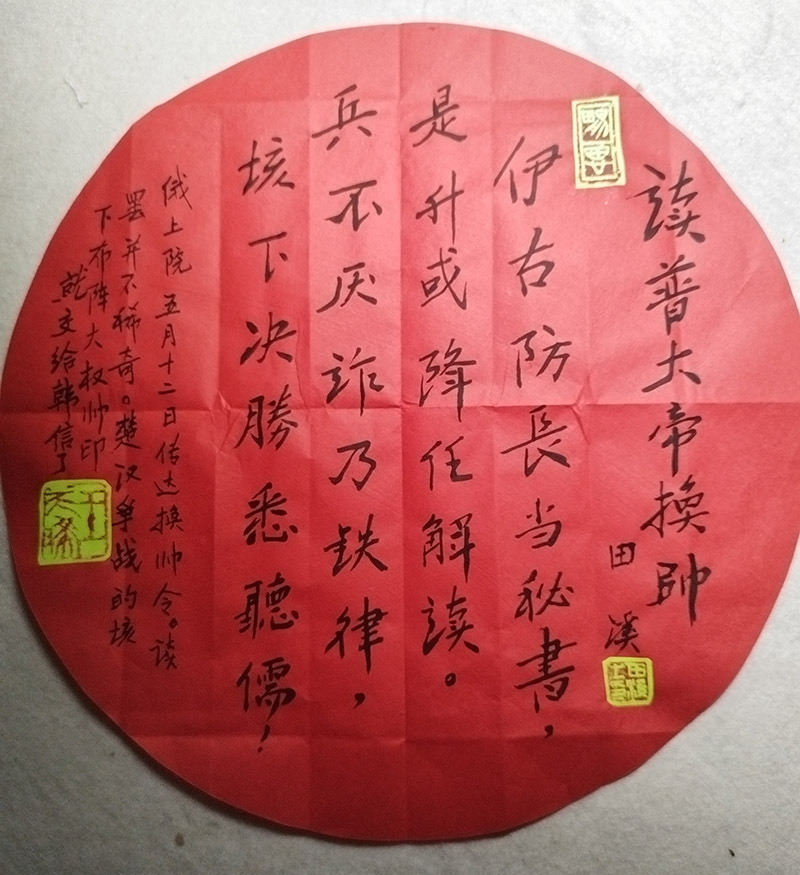 读普大帝換帥
田溪
伊右防長当秘書，
是升或降任解读。
兵不厌诈乃鉄律，
垓下决勝悉聽儒！
俄上院五月十二日传达换帅令。谈
罢并不稀奇。楚汉争战的垓
下布阵大权帅印
就交给韩信了